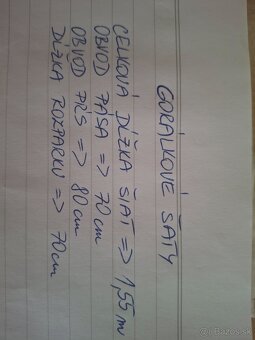 GORÁLKOVÉ ŠATY
CELKOVÁ DĹŽKA ŠIAT => 1,55 m
OBVOD PÁSA => 70 cm
OBVOD PŔS => 80 cm
DĹŽKA ROZPARKU => 70 cm
© Bazos.sk